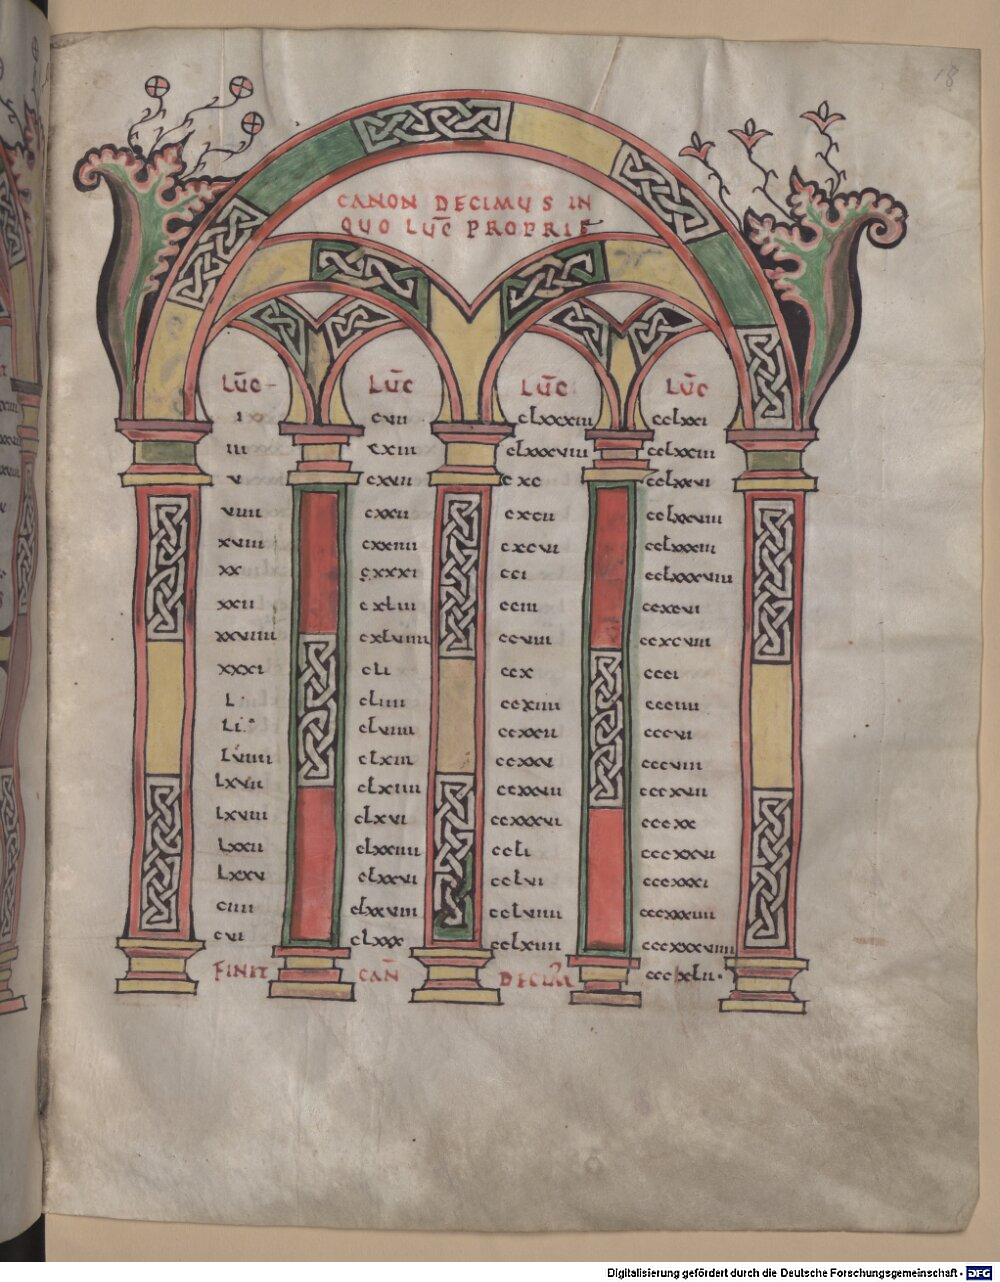 CANON DECIMUS IN
QUO LUC̄ PROPRIE
LŪC
I
III
V
VIIII
XVIII
XX
XXII
XXVIIII
XXXI
L
LI
LVIIII
LXVII
LXVIII
LXXII
LXXV
CIIII
CVI
LŪC
CVII
CXIII
CXVII
CXXII
CXXIIII
CXXXI
CXLIII
CXLVIIII
CLI
CLIIII
CLVIIII
CLXIII
CLXIIII
CLXVI
CLXXIIII
CLXXVI
CLXXVIII
CLXXX
LŪC
CLXXXIII
CLXXXVIIII
CXC
CXCII
CXCVI
CCI
CCIII
CCVIII
CCX
CCXIIII
CCXXII
CCXXV
CCXXVIII
CCXXXVI
CCLI
CCLVI
CCLVIIII
CCLXIIII
LŪC
CCLXXI
CCLXXIII
CCLXXVI
CCLXXVIII
CCLXXXIII
CCLXXXVIII
CCXCVI
CCXCVIII
CCCI
CCCIIII
CCCVI
CCCVIII
CCCXVII
CCCXX
CCCXXVI
CCCXXXI
CCCXXXIIII
CCCXXXVIIII
CCCXLII·
FINIT CAN̄ DECIM̄
18
Digitalisierung gefördert durch die Deutsche Forschungsgemeinschaft - DFG